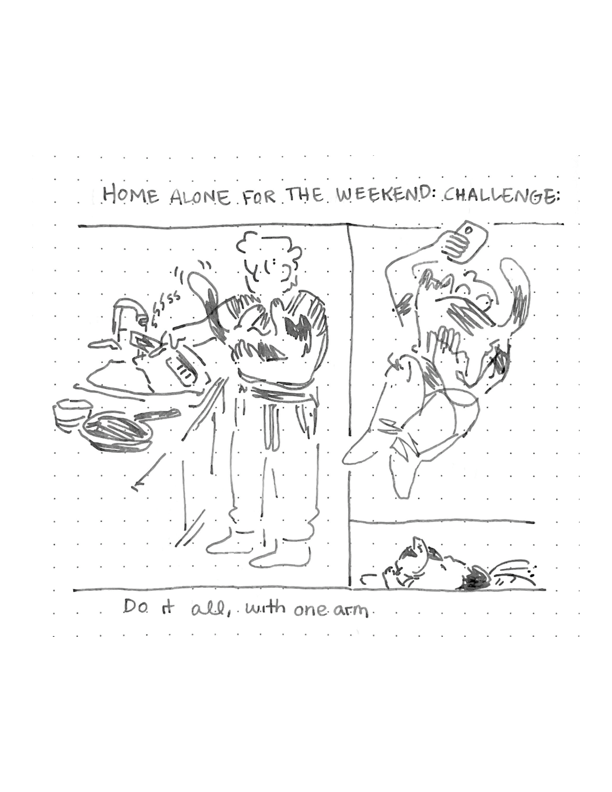 HOME ALONE FOR THE WEEKEND: CHALLENGE:
Do it all, with one arm.